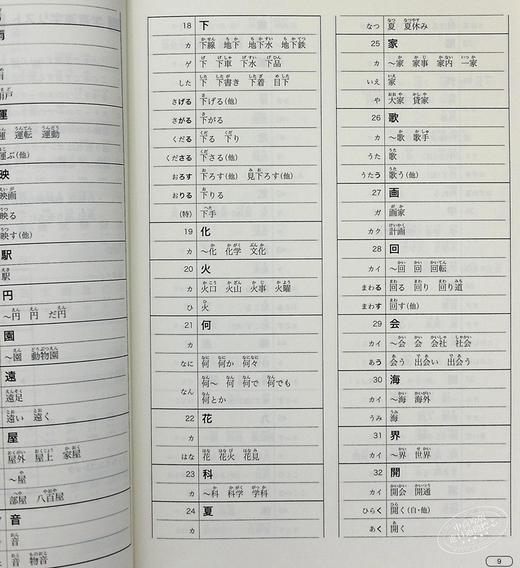 雨
雨戸
運
運 運転 運動
運ぶ(他)
映
映画
映る
映す(他)
駅
駅
円
～円 円 だ円
園
～園 動物園
遠
遠足
遠い 遠く
屋
屋外 屋上 家屋
～屋
部屋 八百屋
音
音
音 物音
18 下
カ 下線 地下 地下水 地下鉄
ゲ 下 下車 下水 下品
した 下 下書き 下着 目下
さげる 下げる(他)
さがる 下がる
くだる 下る 下り
くださる 下さる(他)
おろす 下ろす(他) 見下ろす(他)
おりる 下りる
(特) 下手
19 化
カ ～化 化学 文化
20 火
カ 火口 火山 火事 火曜
ひ 火
21 何
なに 何 何か 何々
なん 何～ 何 何で 何でも
何とか
22 花
カ
はな 花 花火 花見
23 科
カ ～科 科学 学科
24 夏
カ
なつ 夏 夏休み
25 家
カ ～家 家事 家内 一家
いえ 家
や 大家 貸家
26 歌
カ ～歌 歌手
うた 歌
うたう 歌う(他)
27 画
ガ 画家
カク 計画
28 回
カイ ～回 回 回転
まわる 回る 回り 回り道
まわす 回す(他)
29 会
カイ ～会 会 会社 社会
あう 会う 出会い 出会う
30 海
カイ ～海 海外
うみ 海
31 界
カイ ～界 世界
32 開
カイ 開会 開通
ひらく 開く(自・他)
あく 開く
9